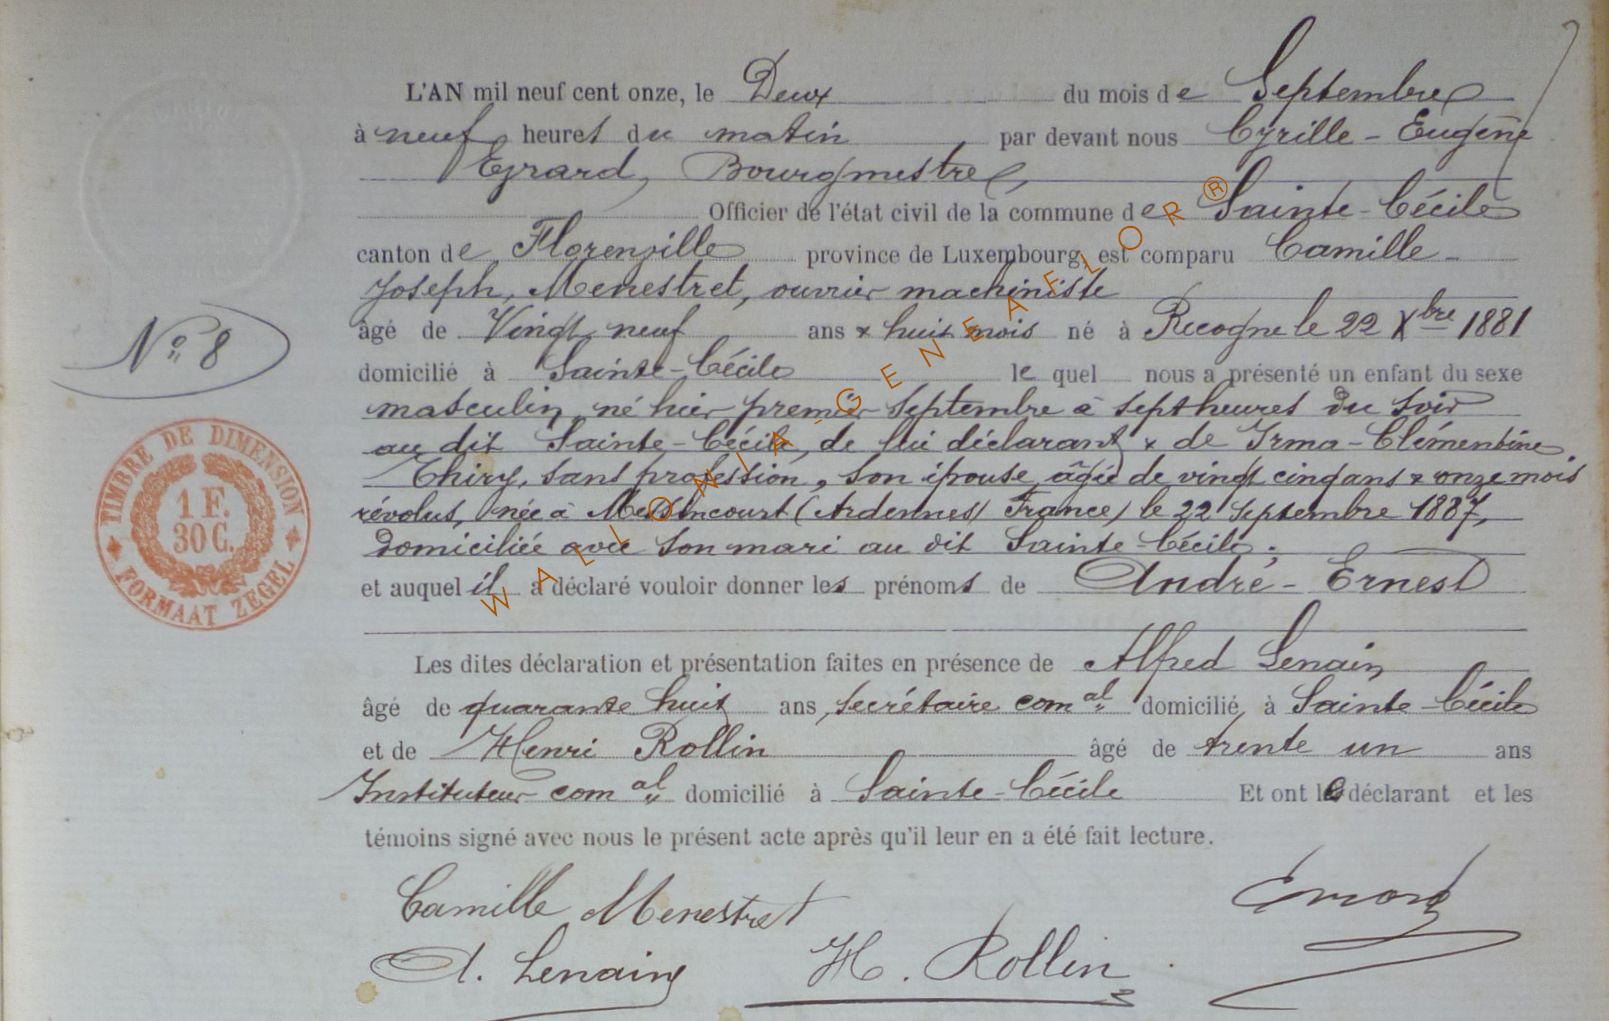 L'AN mil neuf cent onze, le Deux du mois de Septembre
à neuf heures du matin par devant nous Cyrille-Eugène
Evrard, Bourgmestre,
Officier de l'état civil de la commune de Sainte-Cécile
canton de Florenville province de Luxembourg, est comparu Camille-
Joseph, Menestret, ouvrier machiniste
âgé de Vingt neuf ans & huit mois né à Recogne le 22 Xbre 1881
domicilié à Sainte-Cécile lequel nous a présenté un enfant du sexe
masculin, né hier premier Septembre à sept heures du soir
au dit Sainte-Cécile, de lui déclarant & de Irma-Clémentine
Thiry, sans profession, son épouse âgée de vingt cinq ans & onze mois
révolus, née à Messincourt (Ardennes) France) le 22 Septembre 1887,
domiciliée avec son mari au dit Sainte-Cécile;
et auquel il a déclaré vouloir donner les prénoms de André-Ernest
Les dites déclaration et présentation faites en présence de Alfred Lenain
âgé de quarante huit ans, secrétaire comal domicilié à Sainte-Cécile
et de Henri Rollin âgé de trente un ans
Instituteur comal domicilié à Sainte-Cécile Et ont le déclarant et les
témoins signé avec nous le présent acte après qu'il leur en a été fait lecture.
Camille Menestret
A. Lenain H. Rollin
No 8
TIMBRE DE DIMENSION
1 F.
30 C.
FORMAAT ZEGEL
WALLONIA-GENEAFLOR®